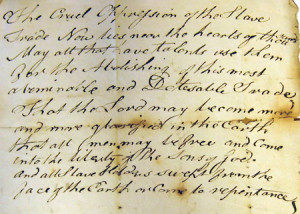 The Cruel Oppression of the Slave
Trade Now lies near the hearts of
May all that have talents use them
For the Abolishing of this most
abominable and Detestable Trade
That the Lord may become more
and more glorified in the Earth
that all men may be free and come
into the liberty of the Sons of God.
and all Slave Holders swept from the
face of the Earth or Come to repentance